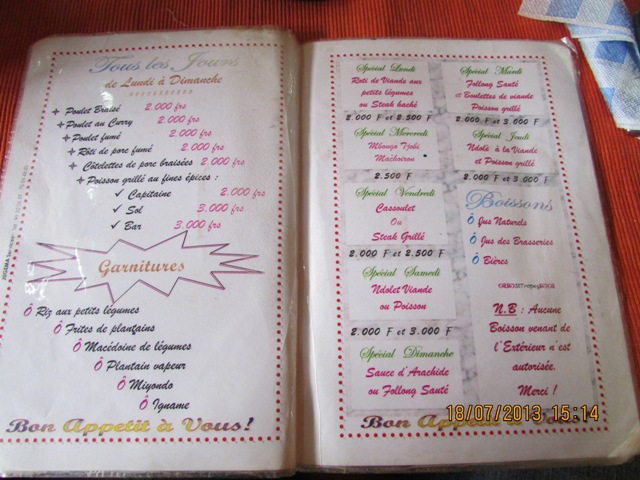 Tous les Jours
de Lundi à Dimanche
Poulet Braisé 2.000 frs
Poulet au Curry 2.000 frs
Poulet fumé 2.000 frs
Rôti de porc fumé 2.000 frs
Côtelettes de porc braisées 2 000 frs
Poisson grillé au fines épices :
Capitaine 2.000 frs
Sol 3.000 frs
Bar 3.000 frs
Garnitures
Riz aux petits légumes
Frites de plantains
Macédoine de légumes
Plantain vapeur
Miyondo
Igname
Bon Appetit à Vous!
Spécial Lundi
Roti de Viande aux
petits légumes
ou Steak haché
2.000 F et 2.500 F
Spécial Mercredi
Mbongo Tjobi
Machoiron
2.500 F
Spécial Vendredi
Cassoulet
Ou
Steak Grillé
2.000 F et 2.500 F
Spécial Samedi
Ndolet Viande
ou Poisson
2.000 F et 3.000 F
Spécial Dimanche
Sauce d'Arachide
ou Follong Sauté
Spécial Mardi
Follong Sauté
et Boulettes de viande
Poisson grillé
2.000 F et 3.000 F
Spécial Jeudi
Ndolè à la Viande
et Poisson grillé
2.000 F et 3.000 F
Boissons
Jus Naturels
Jus des Brasseries
Bières
N.B : Aucune
Boisson venant de
l'Extérieur n'est
autorisée.
Merci !
Bon Appetit à Vous!
18/07/2013 15:14